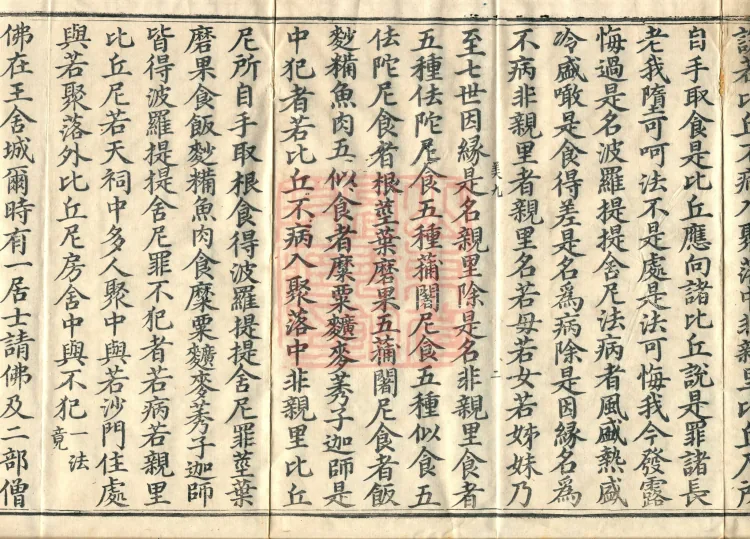 自手取食是比丘應向諸比丘說是罪諸長
老我墮可呵法不是處是法可悔我今發露
悔過是名波羅提提舍尼法病者風盛熱盛
冷盛噉是食得差是名爲病除是因緣名爲
不病非親里者親里名若母若女若姊妹乃
至七世因緣是名親里除是名非親里食者
五種佉陀尼食五種蒱闍尼食五種似食五
佉陀尼食者根莖葉磨果五蒱闍尼食者飯
麨糒魚肉五似食者糜粟䵃麥莠子迦師是
中犯者若比丘不病入聚落中非親里比丘
尼所自手取根食得波羅提提舍尼罪莖葉
磨果食飯麨糒魚肉食糜粟䵃麥莠子迦師
皆得波羅提提舍尼罪不犯者若病若親里
比丘尼若天祠中多人聚中與若沙門住處
與若聚落外比丘尼房舍中與不犯一法竟
佛在王舍城爾時有一居士請佛及二部僧